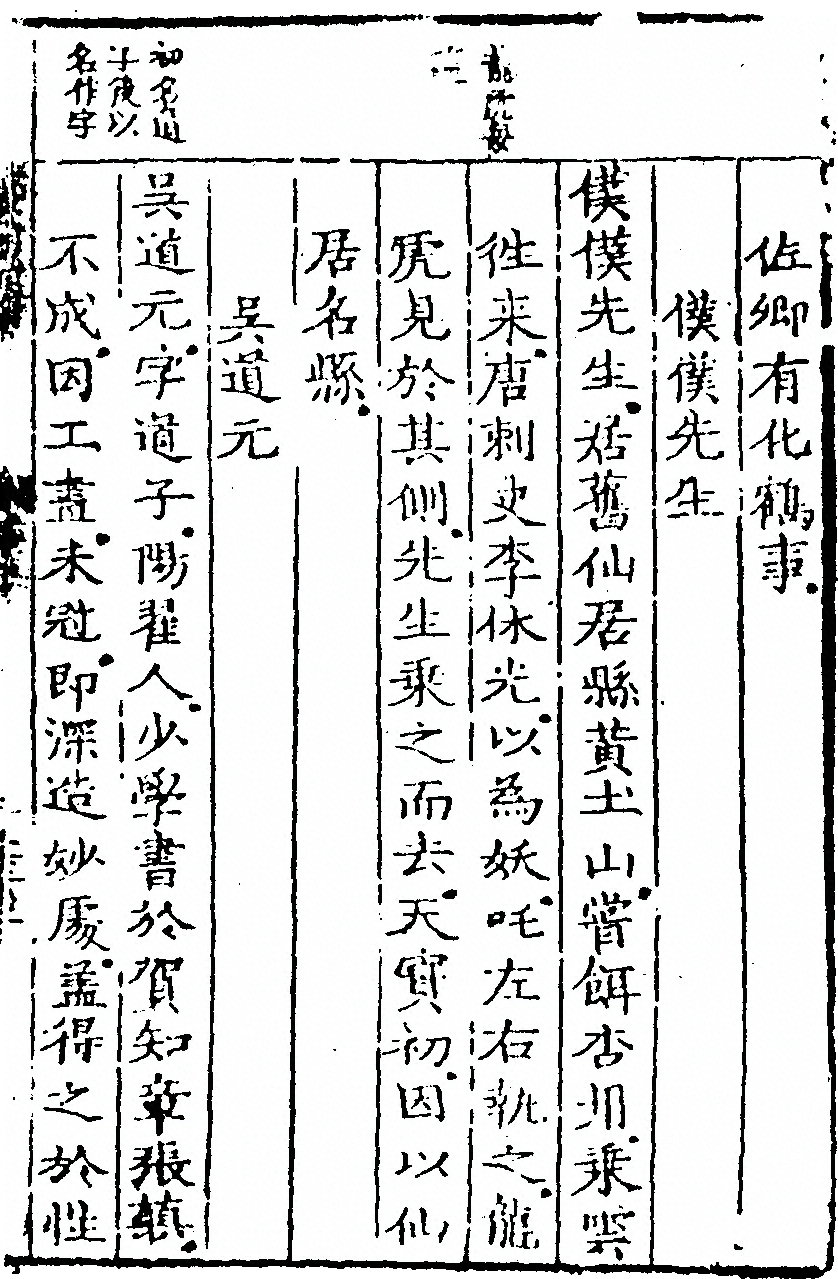 佐卿有化鶴事
僕僕先生
僕僕先生居舊仙居縣黃土山嘗餌杏丹乗雲
徃来唐刺史李休光以為妖吒左右執之龍
虎見於其側先生乗之而去天寶初因以仙
居名縣
吳道元
吳道元字道子陽翟人少學書於賀知章張顛
不成因工畫未冠即深造妙處盖得之於性
初名道
子後以
名作字